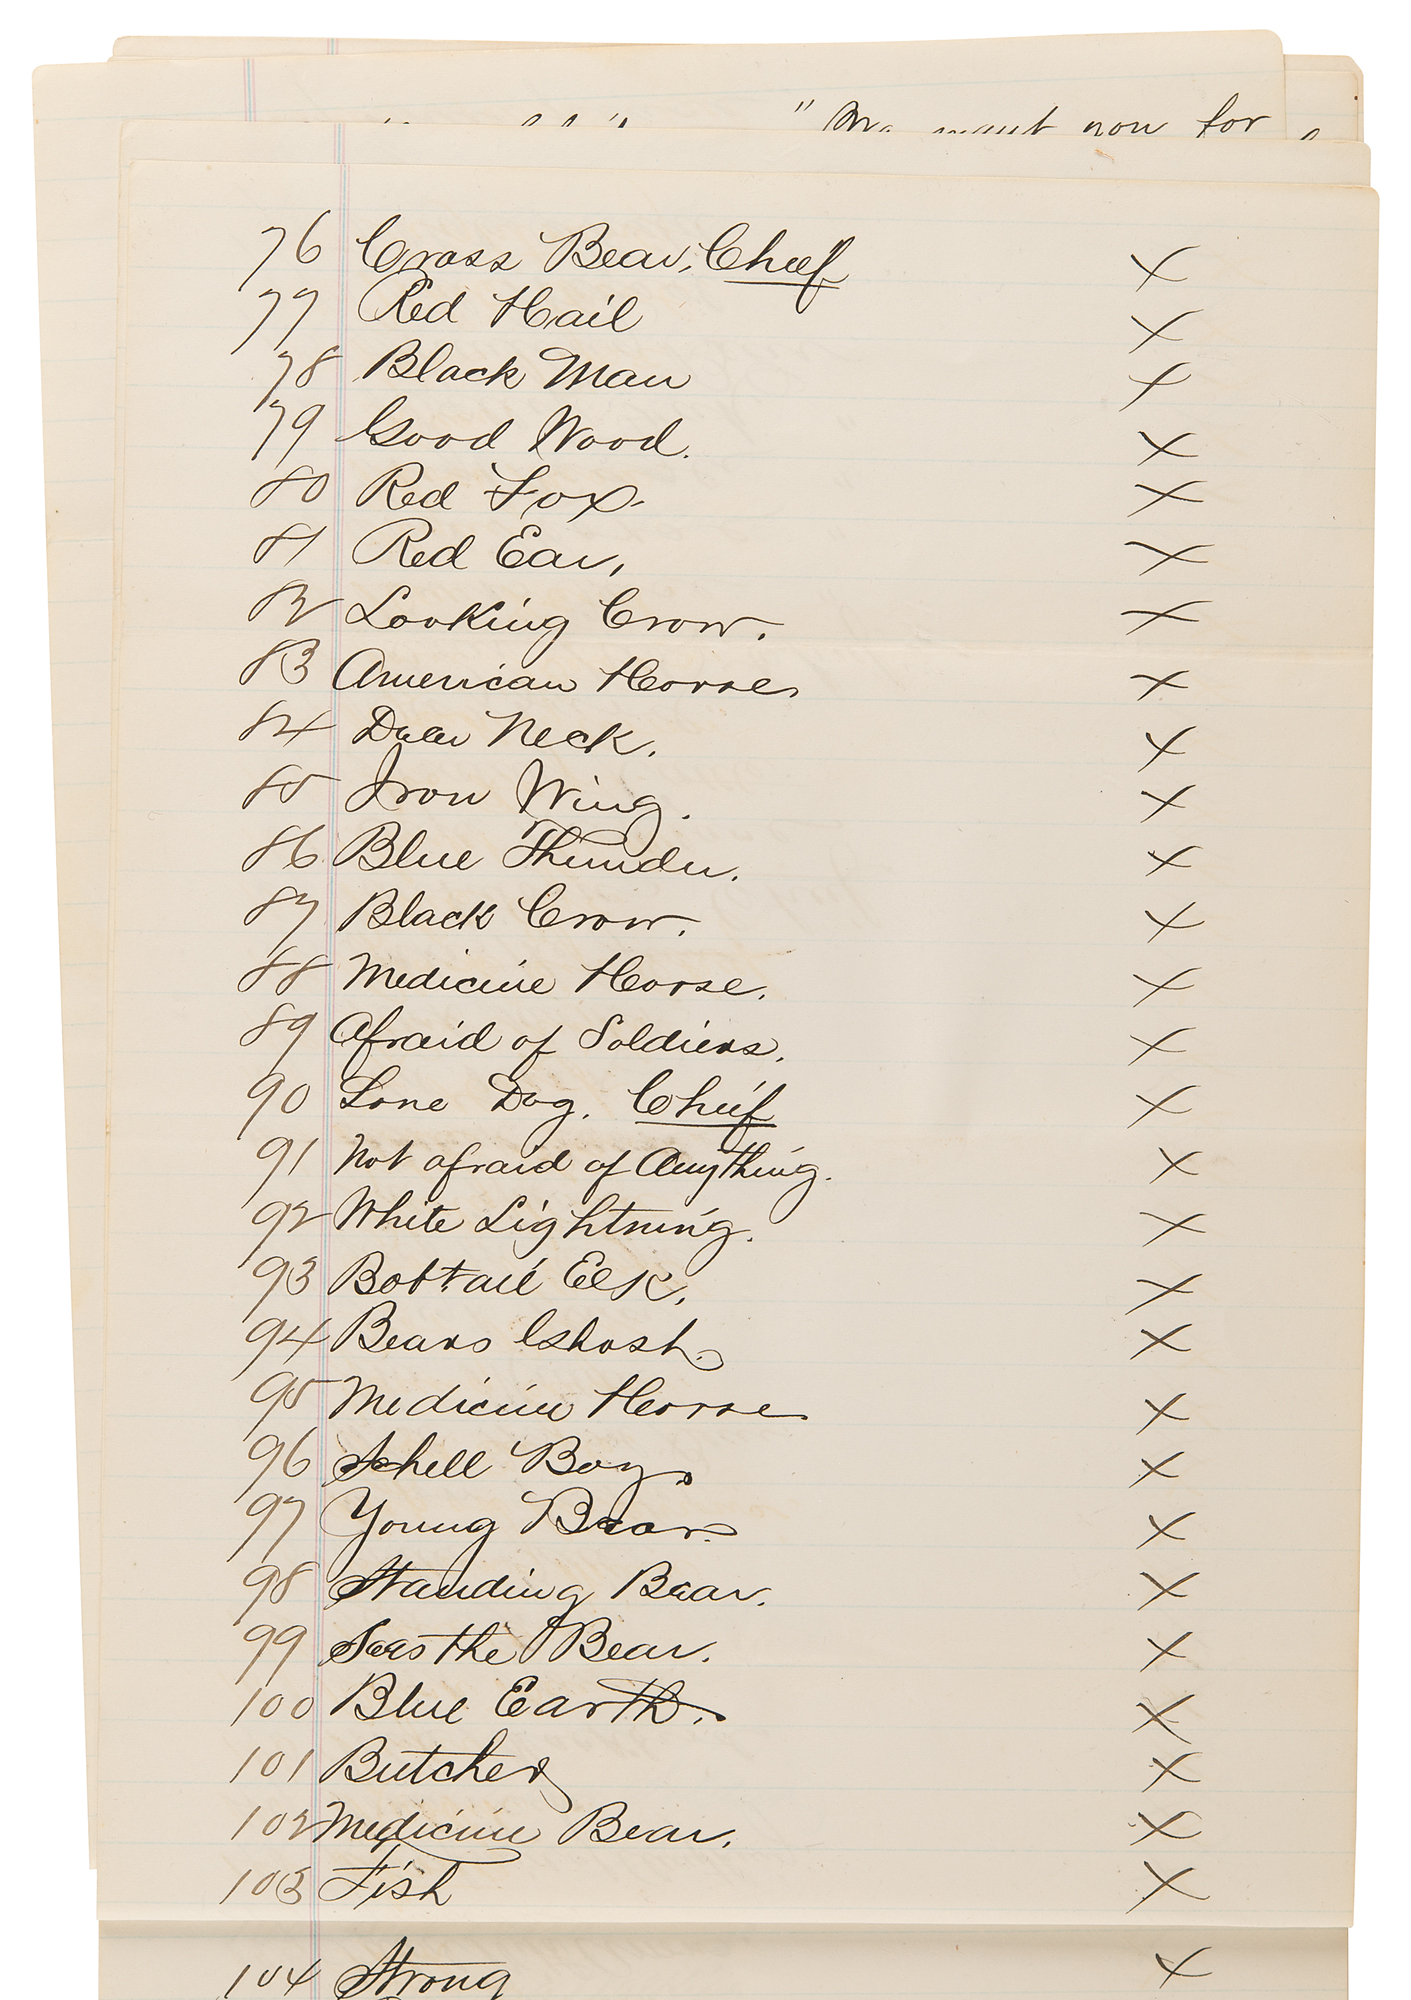 " We want now for
76 Cross Bear, Chief x
77 Red Hail x
78 Black Man x
79 Good Wood. x
80 Red Fox. x
81 Red Ear, x
82 Looking Crow. x
83 American Horse, x
84 Dear Neck. x
85 Iron Wing. x
86 Blue Thunder. x
87 Black Crow. x
88 Medicine Horse. x
89 Afraid of Soldiers. x
90 Lone Dog. Chief x
91 Not afraid of Anything. x
92 White Lightning. x
93 Bobtail Elk. x
94 Bears Ghost. x
95 Medicine Horse x
96 Shell Boy. x
97 Young Bear. x
98 Standing Bear. x
99 Sees the Bear. x
100 Blue Earth. x
101 Butcher x
102 Medicine Bear. x
103 Fish x
104 Strong x